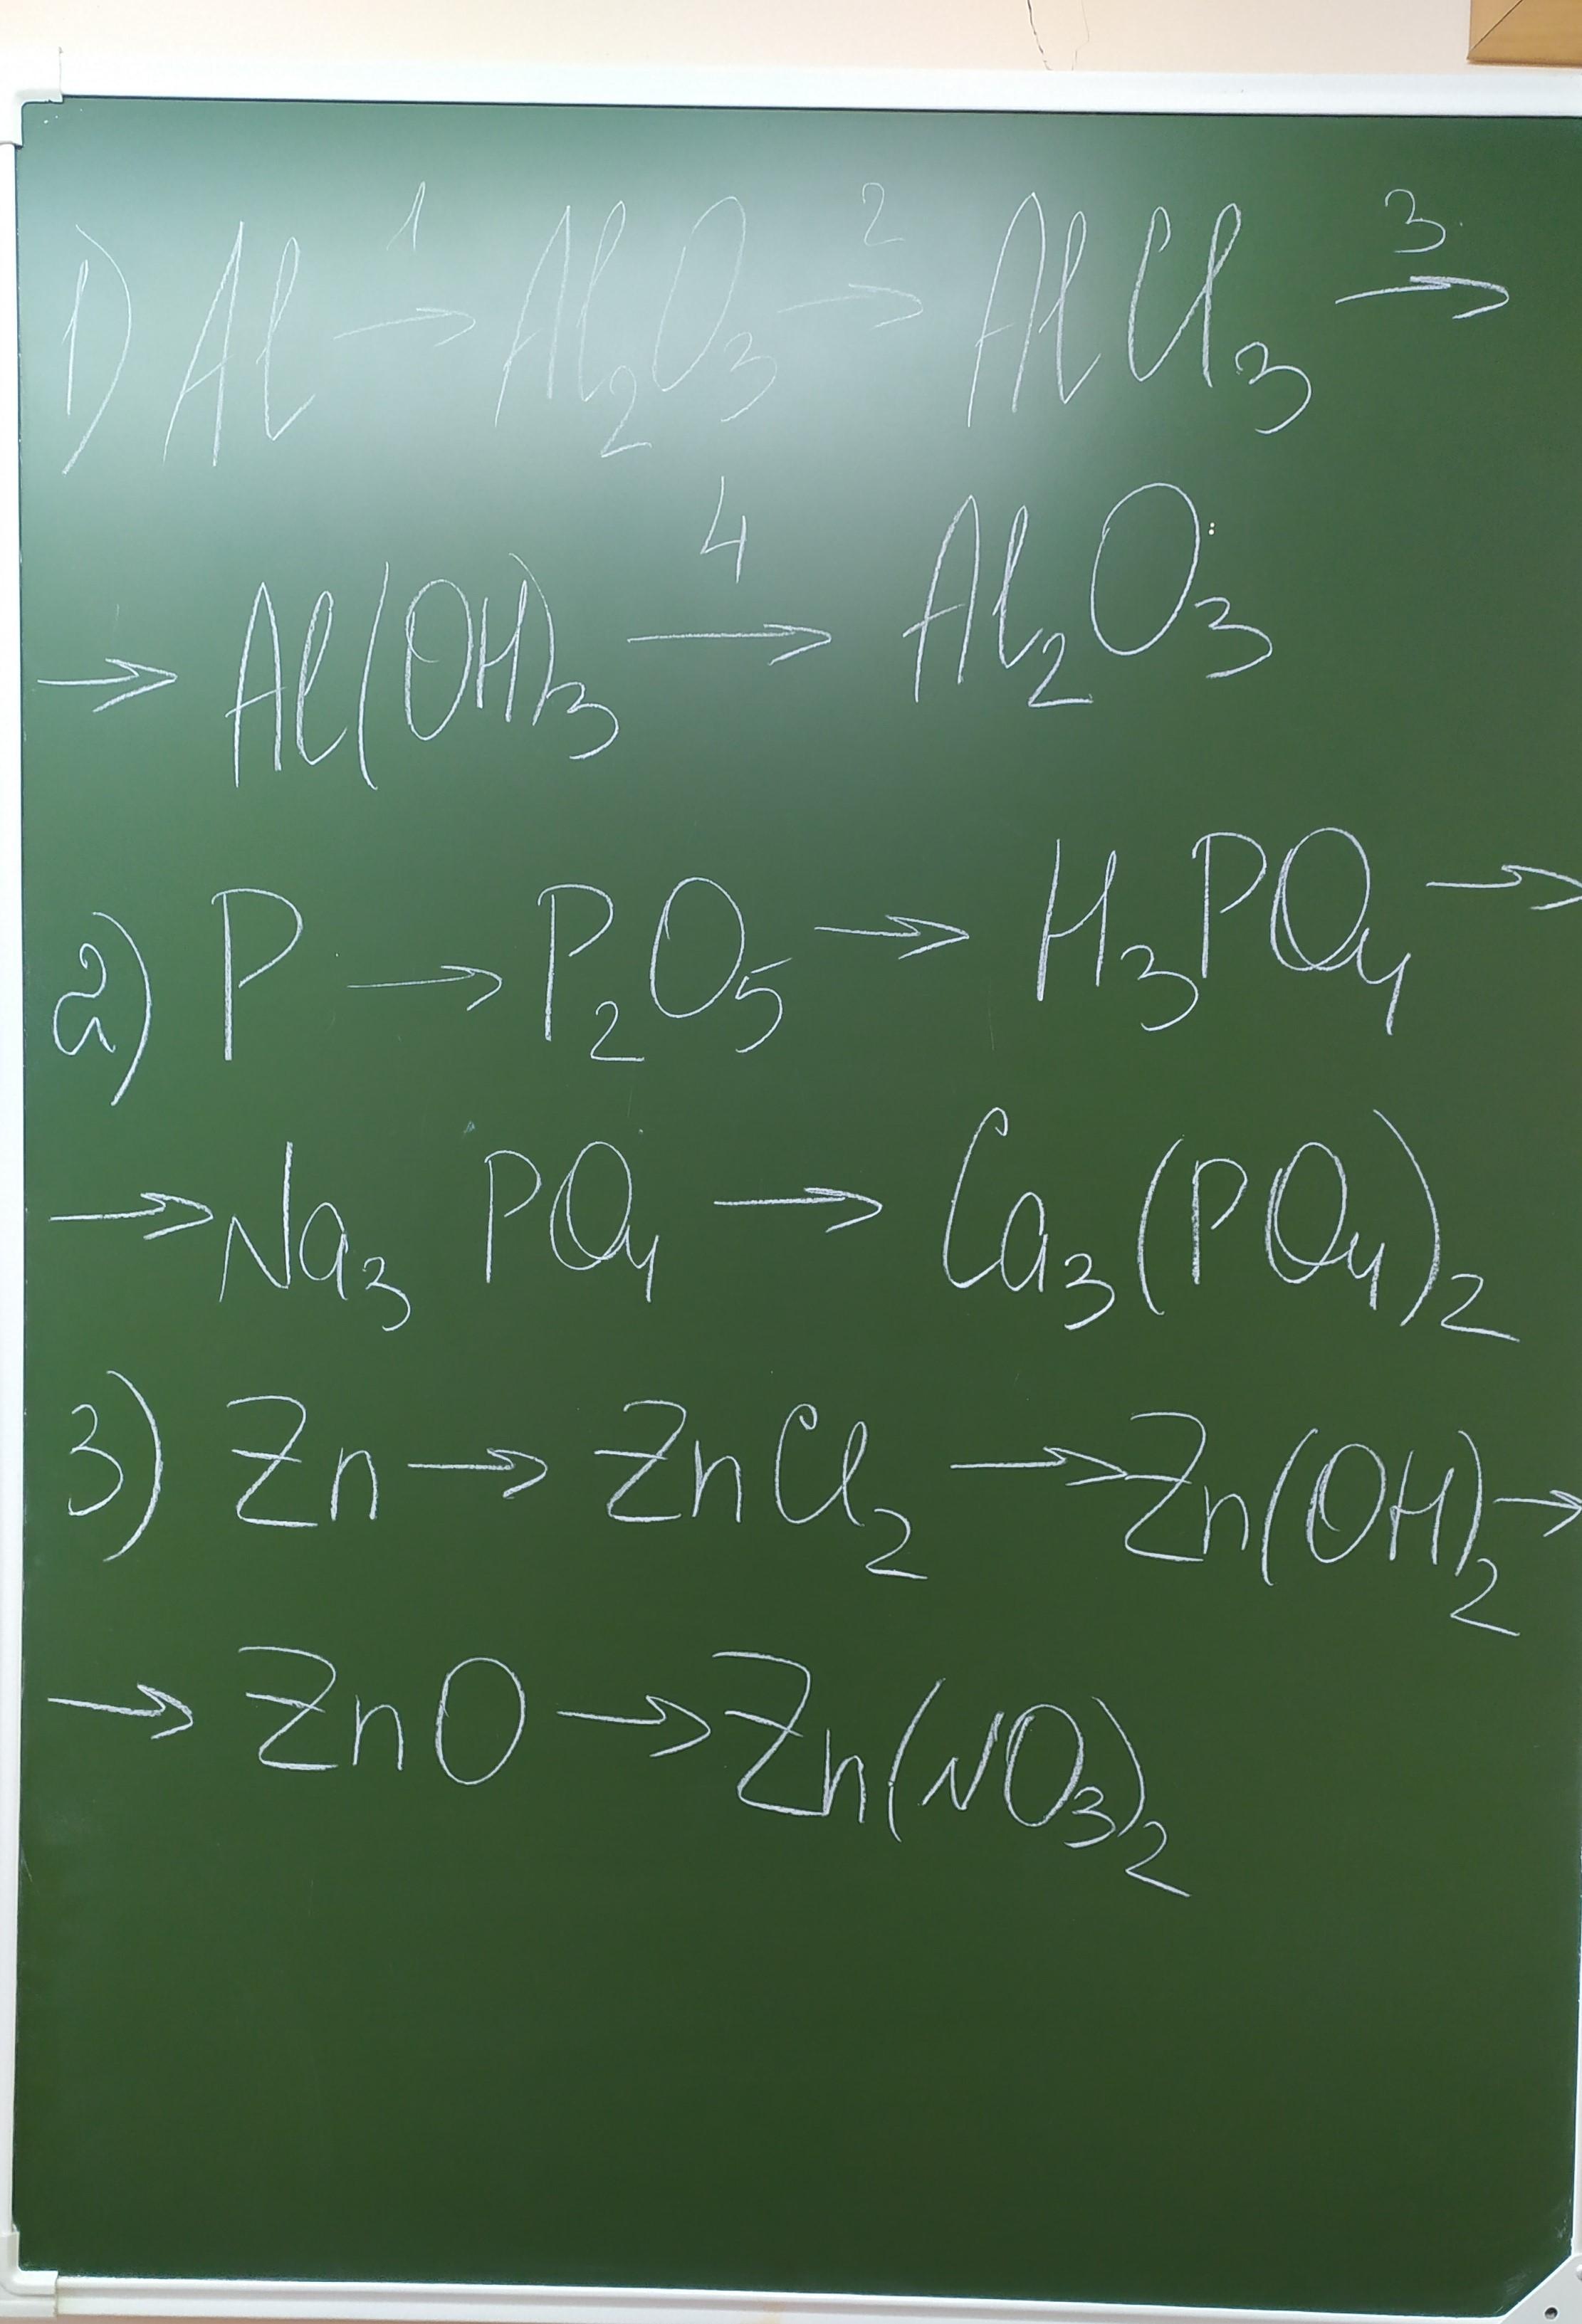 1) Al →¹ Al₂O₃ →² AlCl₃ →³
→ Al(OH)₃ →⁴ Al₂O₃
2) P → P₂O₅ → H₃PO₄ →
→ Na₃PO₄ → Ca₃(PO₄)₂
3) Zn → ZnCl₂ → Zn(OH)₂ →
→ ZnO → Zn(NO₃)₂